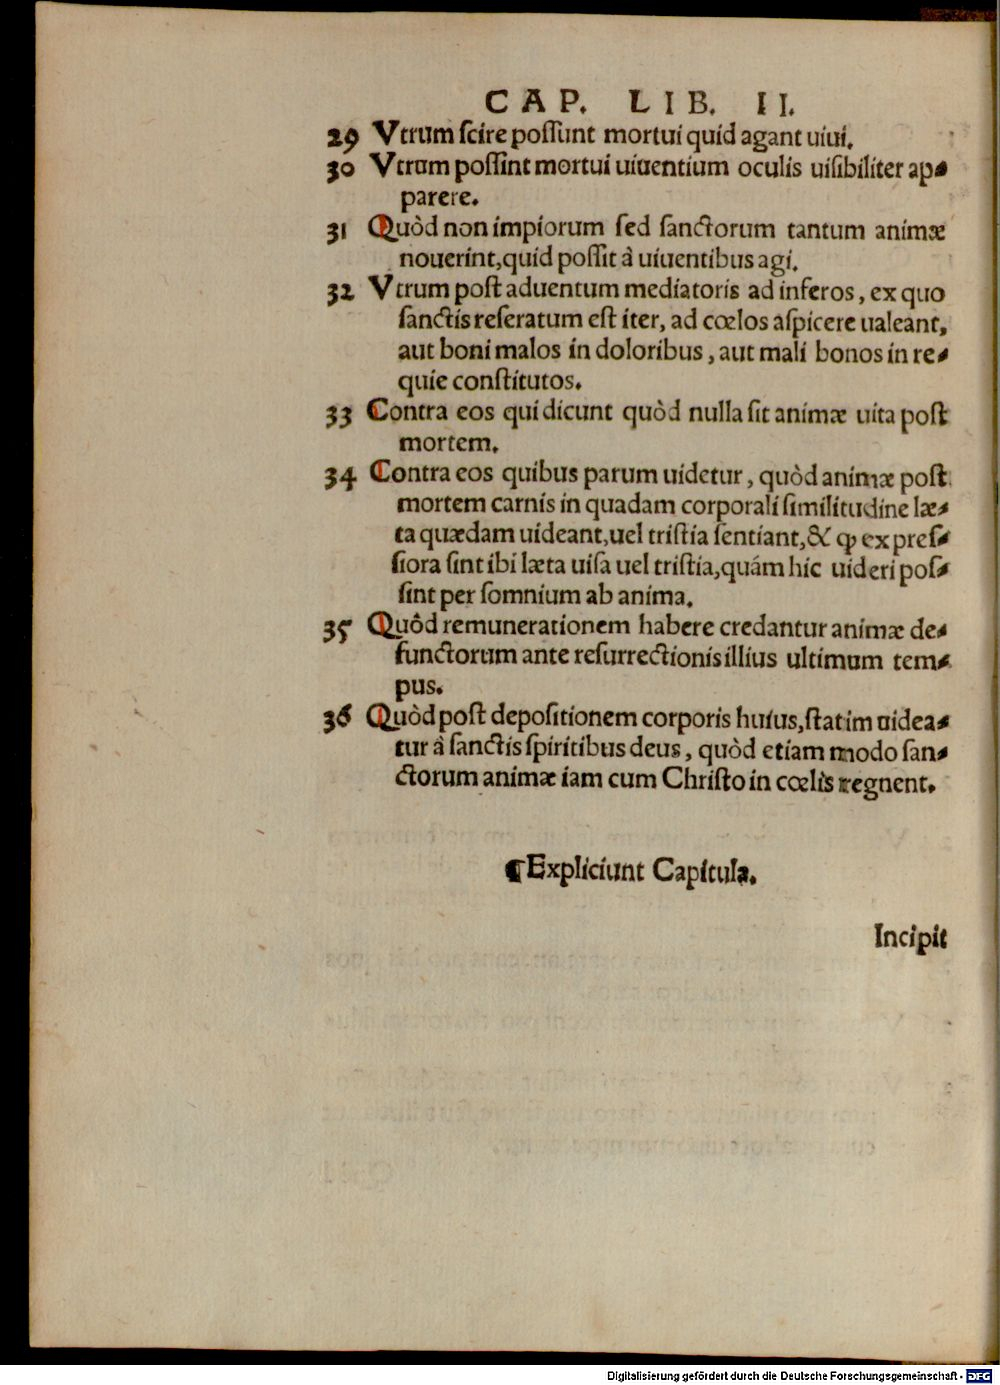 CAP. LIB. II.
29 Vtrum ſcire poſſunt mortui quid agant uiui.
30 Vtrum poſſint mortui uiuentium oculis uiſibiliter ap-
parere.
31 Quòd non impiorum ſed ſanctorum tantum animæ
nouerint, quid poſſit à uiuentibus agi.
32 Vtrum poſt aduentum mediatoris ad inferos, ex quo
ſanctis reſeratum eſt iter, ad cœlos aſpicere ualeant,
aut boni malos in doloribus, aut mali bonos in re-
quie conſtitutos.
33 Contra eos qui dicunt quòd nulla ſit animæ uita poſt
mortem.
34 Contra eos quibus parum uidetur, quòd animæ poſt
mortem carnis in quadam corporali ſimilitudine læ-
ta quædam uideant, uel triſtia ſentiant, & ꝙ expreſ-
ſiora ſint ibi læta uiſa uel triſtia, quám hic uideri poſ-
ſint per ſomnium ab anima.
35 Quôd remunerationem habere credantur animæ de-
functorum ante reſurrectionis illius ultimum tem-
pus.
36 Quòd poſt depoſitionem corporis huius, ſtatim uidea-
tur à ſanctis ſpiritibus deus, quòd etiam modo ſan-
ctorum animæ iam cum Chriſto in cœlis regnent.
¶Expliciunt Capitula.
Incipit
Digitalisierung gefördert durch die Deutsche Forschungsgemeinschaft - DFG